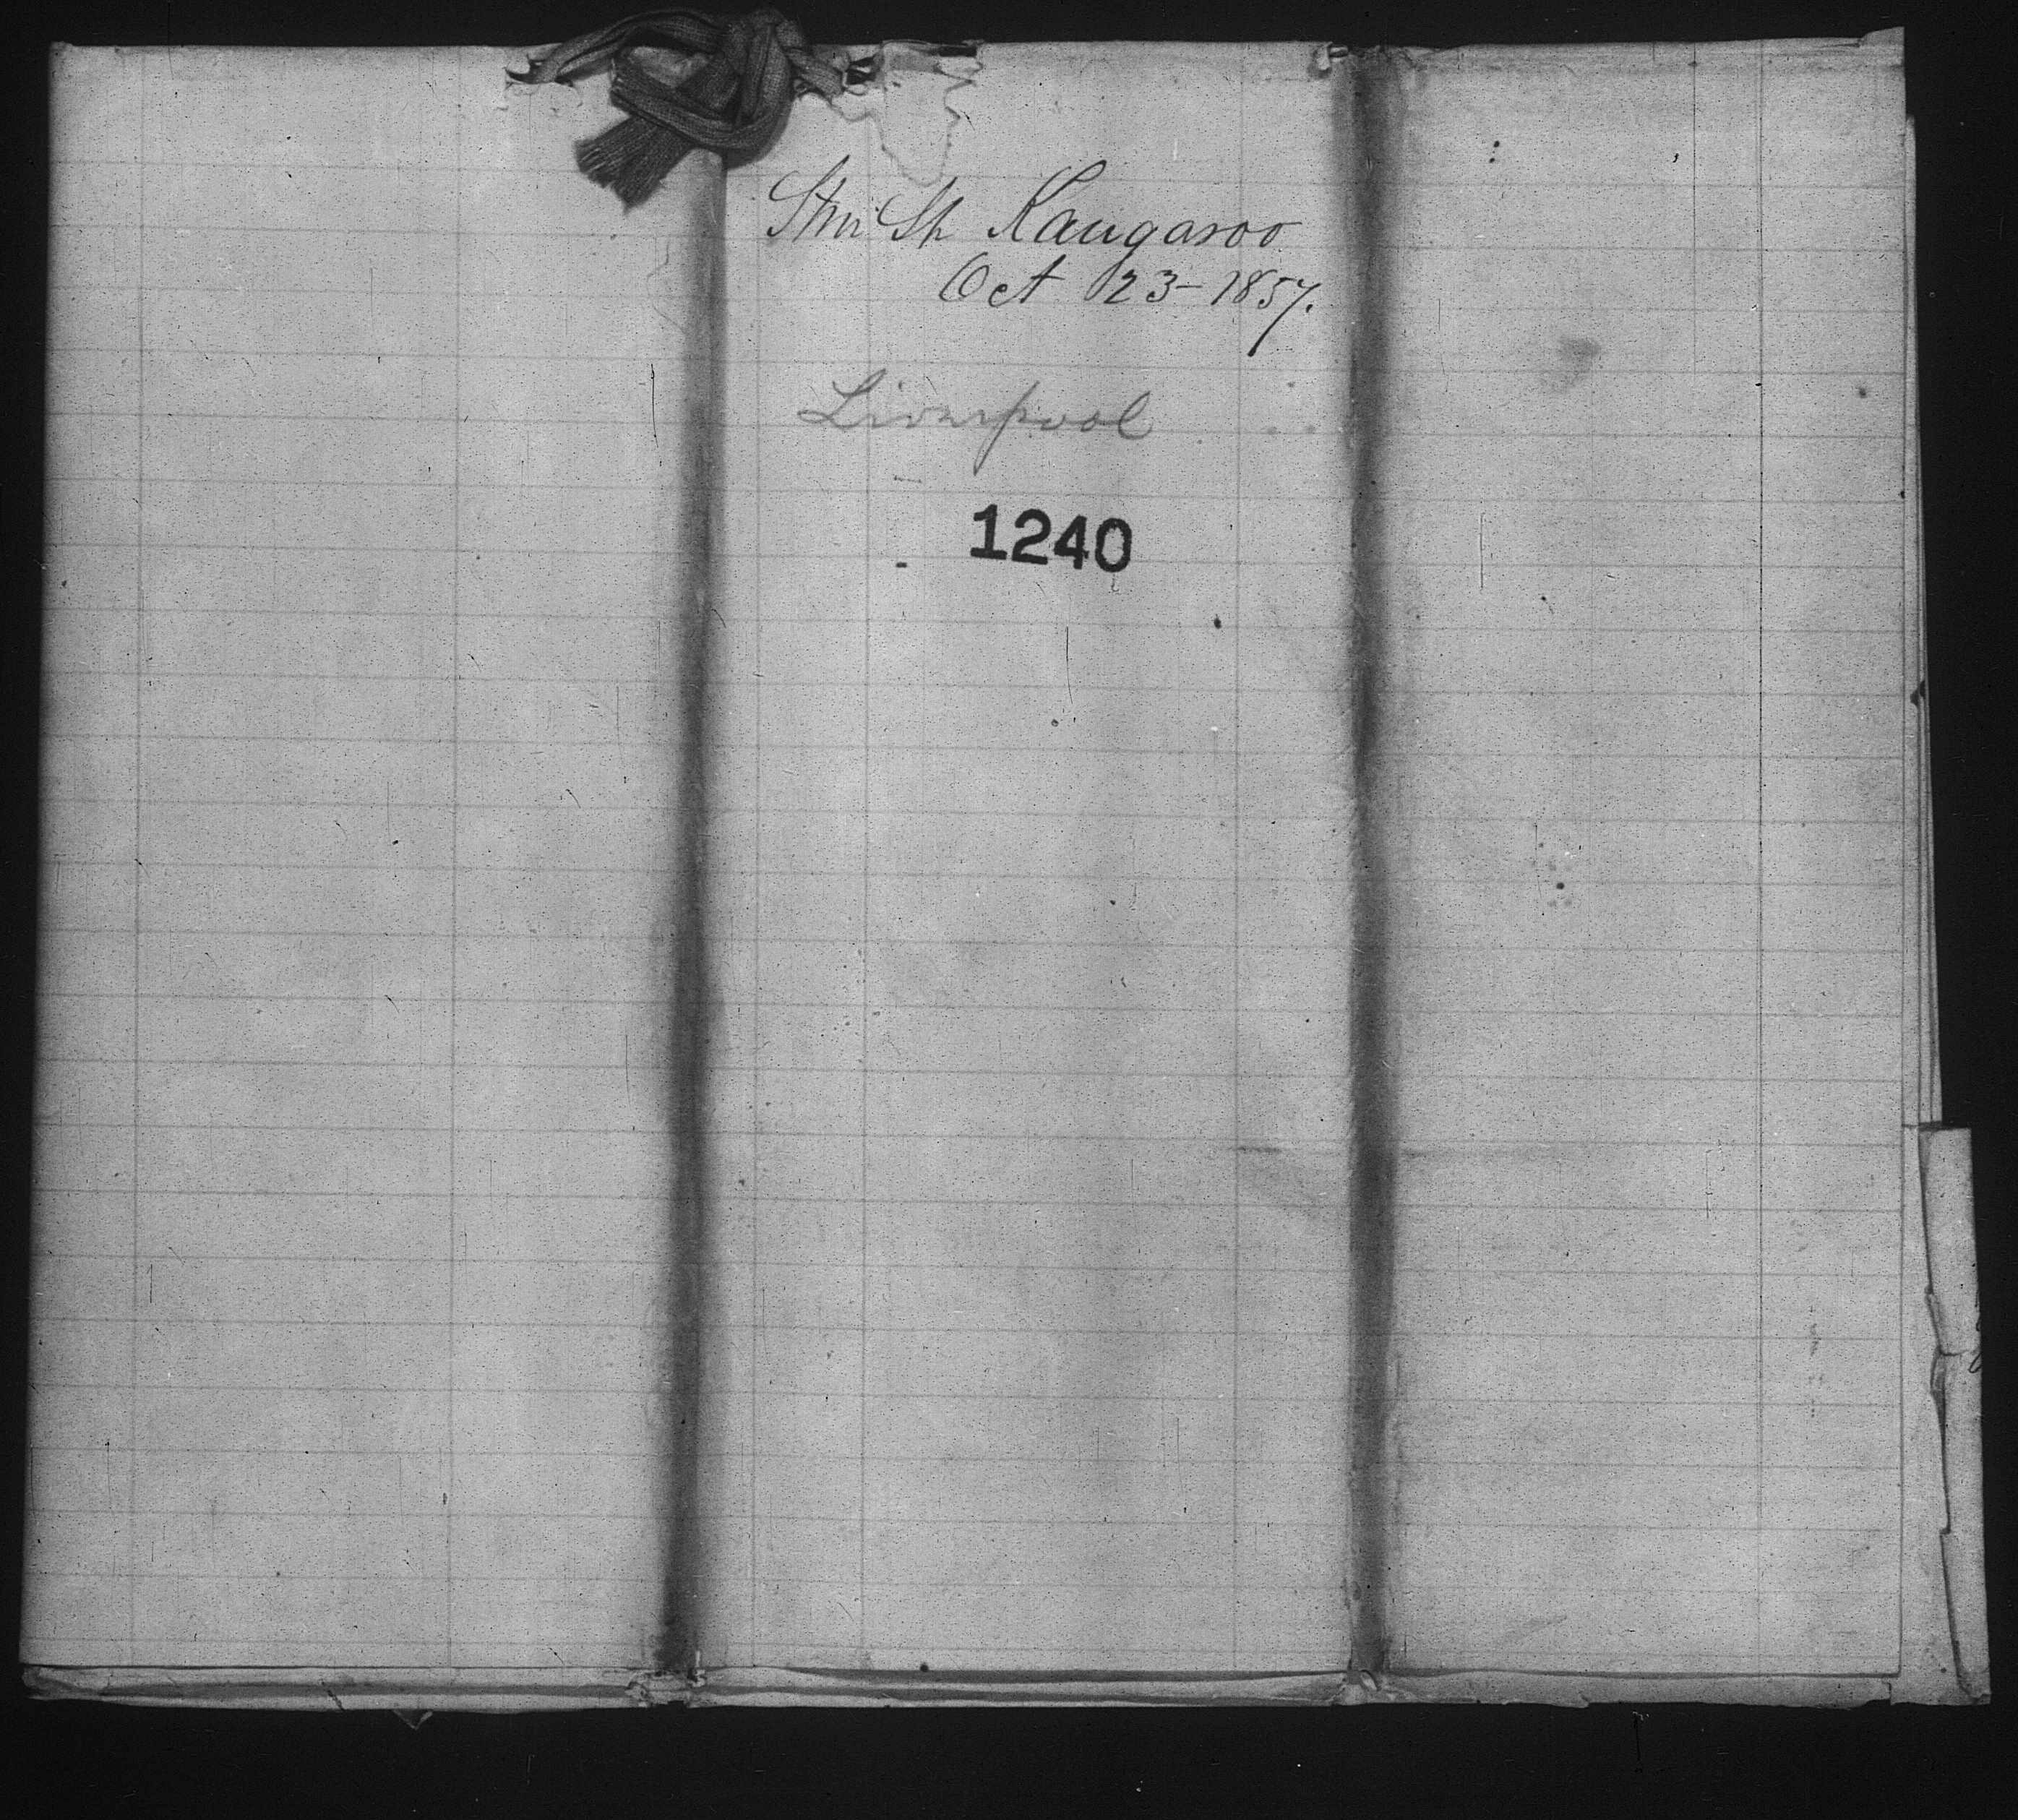 Stm Sh Kangaroo
Oct 23 - 1857.
Liverpool
1240